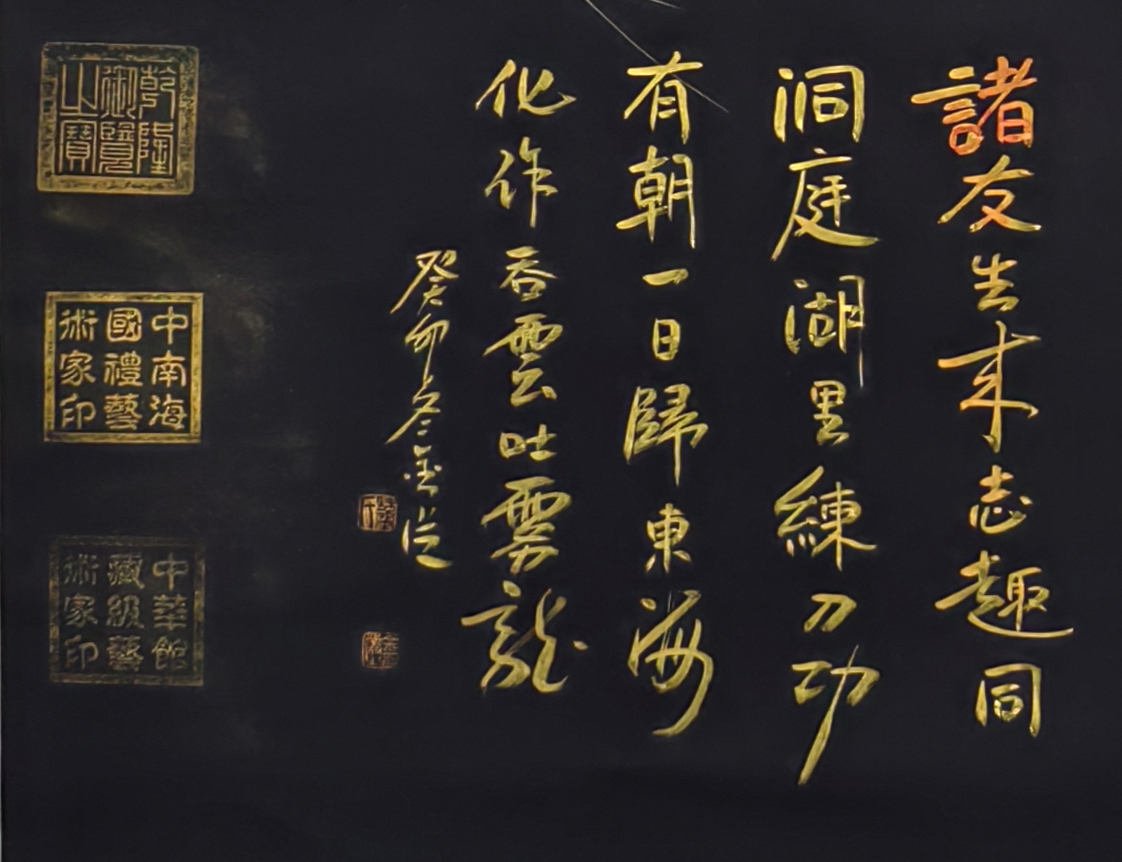 諸友生来志趣同
洞庭湖里練刀功
有朝一日歸東海
化作吞雲吐霧龍
癸卯冬
乾隆
御覽
之寶
中南海
國禮藝
術家印
中華館
藏級藝
術家印